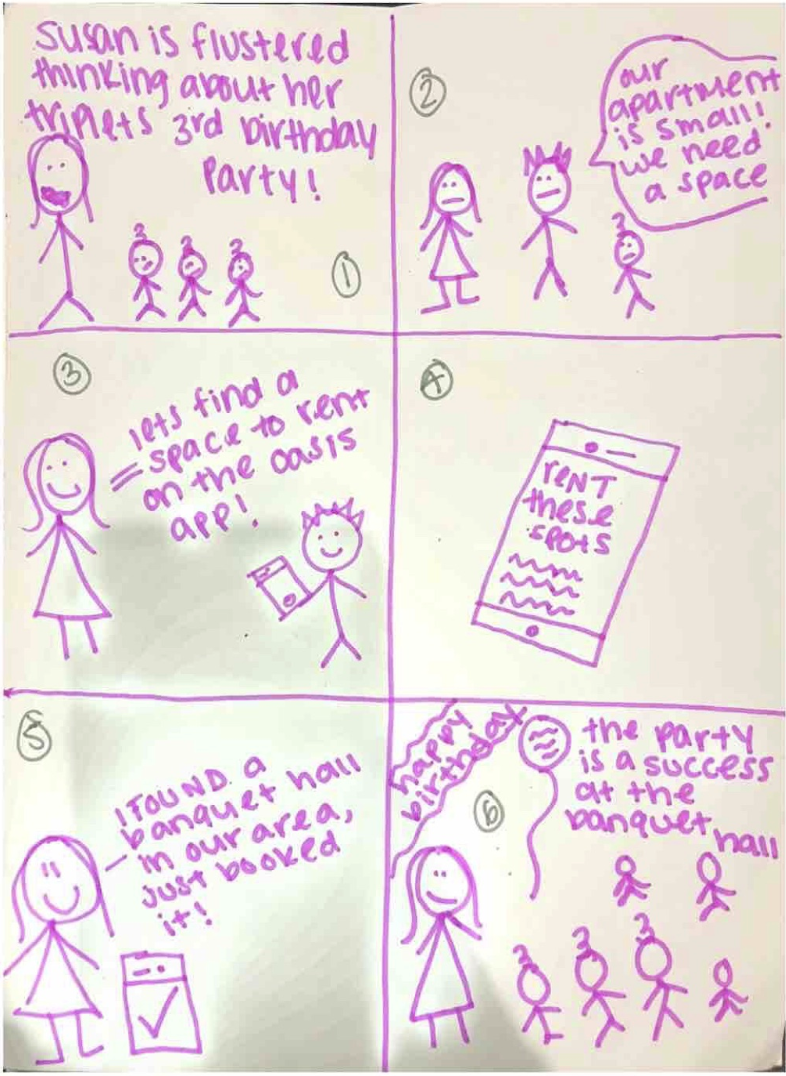 Susan is flustered
thinking about her
triplets 3rd birthday
Party!
1
2
our
apartment
is small!
we need
a space
3
lets find a
space to rent
on the oasis
app!
4
reNT
these
spots
5
I FOUND a
banquet hall
in our area,
just booked
it!
happy
birthday
6
the party
is a success
at the
banquet hall